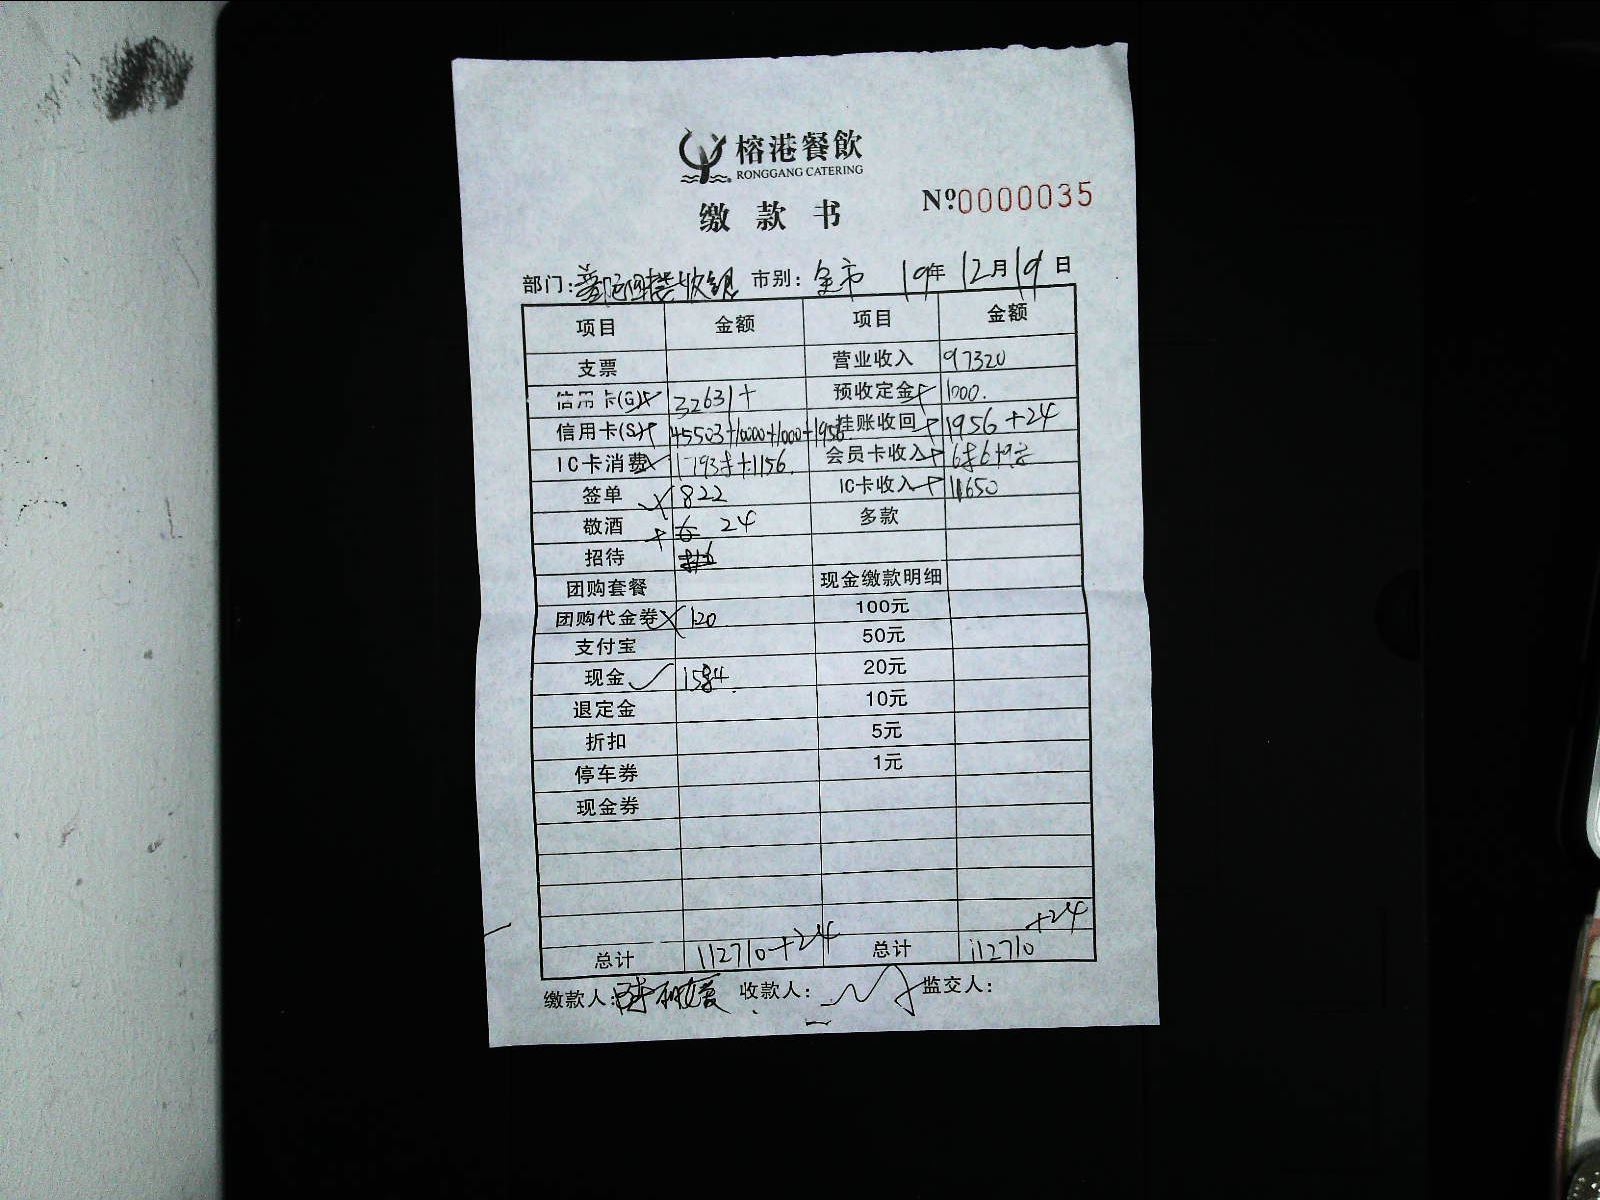 榕港餐飲
RONGGANG CATERING
缴款书
Nº0000035
部门: 收银 市别: 全市 19年12月19日
项目 金额 项目 金额
支票 营业收入 97320
信用卡(G) 32631+ 预收定金 1000.
信用卡(S) 45503+10000+1000+1956 挂账收回 1956+24
IC卡消费 会员卡收入
签单 822 IC卡收入 11650
敬酒 24 多款
招待
团购套餐 现金缴款明细
团购代金券 120 100元
支付宝 50元
现金 1584. 20元
退定金 10元
折扣 5元
停车券 1元
现金券
总计 112710+24 总计 112710+24
缴款人: 收款人: 监交人: